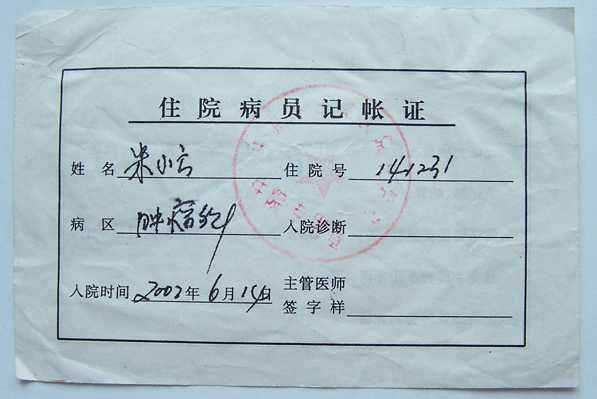 住院病员记帐证
姓名 朱小云 住院号 141231
病区 肿瘤科 入院诊断
入院时间 2002年6月14日 主管医师
签字样